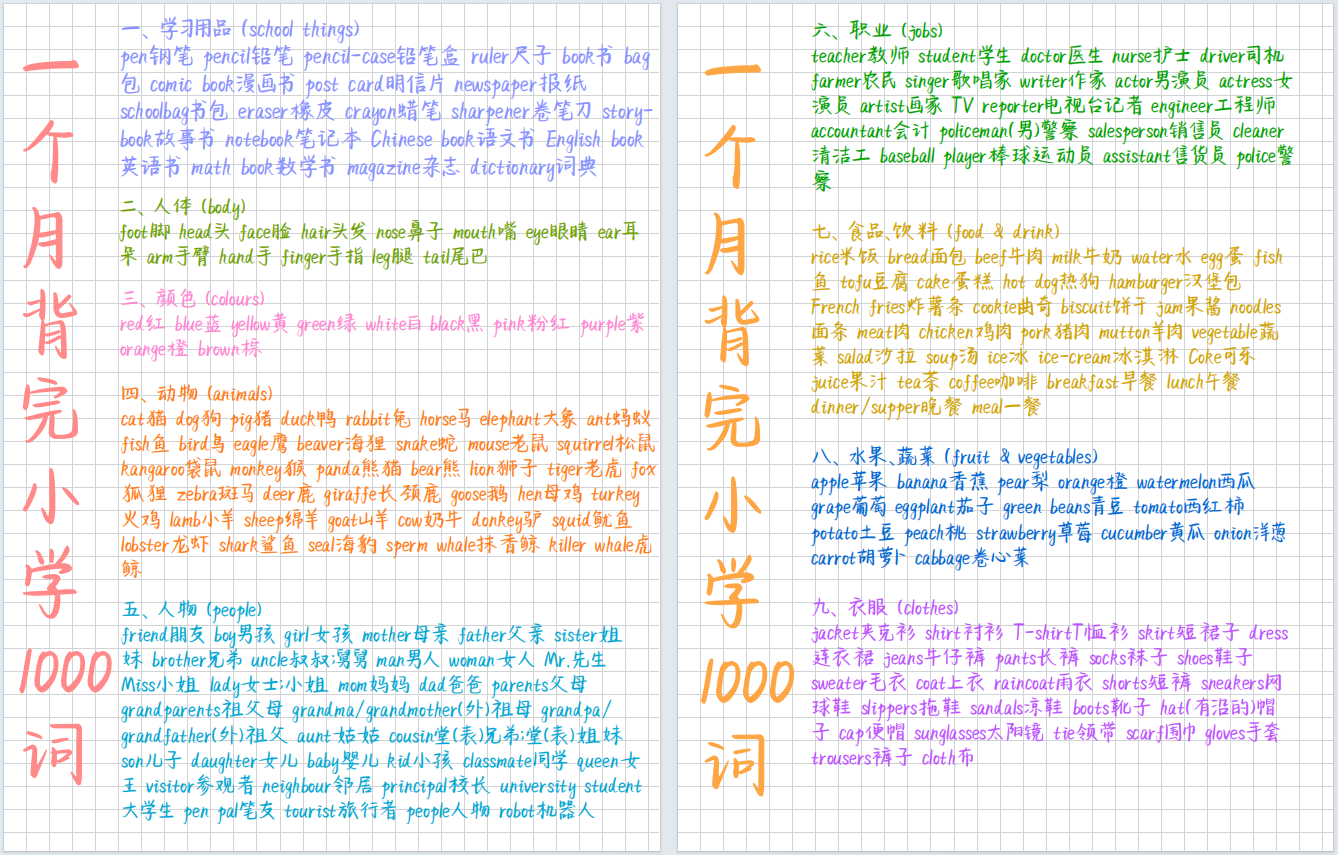 一个月背完小学1000词
一、学习用品 (school things)
pen钢笔 pencil铅笔 pencil-case铅笔盒 ruler尺子 book书 bag
包 comic book漫画书 post card明信片 newspaper报纸
schoolbag书包 eraser橡皮 crayon蜡笔 sharpener卷笔刀 story-
book故事书 notebook笔记本 Chinese book语文书 English book
英语书 math book数学书 magazine杂志 dictionary词典
二、人体 (body)
foot脚 head头 face脸 hair头发 nose鼻子 mouth嘴 eye眼睛 ear耳
朵 arm手臂 hand手 finger手指 leg腿 tail尾巴
三、颜色 (colours)
red红 blue蓝 yellow黄 green绿 white白 black黑 pink粉红 purple紫
orange橙 brown棕
四、动物 (animals)
cat猫 dog狗 pig猪 duck鸭 rabbit兔 horse马 elephant大象 ant蚂蚁
fish鱼 bird鸟 eagle鹰 beaver海狸 snake蛇 mouse老鼠 squirrel松鼠
kangaroo袋鼠 monkey猴 panda熊猫 bear熊 lion狮子 tiger老虎 fox
狐狸 zebra斑马 deer鹿 giraffe长颈鹿 goose鹅 hen母鸡 turkey
火鸡 lamb小羊 sheep绵羊 goat山羊 cow奶牛 donkey驴 squid鱿鱼
lobster龙虾 shark鲨鱼 seal海豹 sperm whale抹香鲸 killer whale虎
鲸
五、人物 (people)
friend朋友 boy男孩 girl女孩 mother母亲 father父亲 sister姐
妹 brother兄弟 uncle叔叔;舅舅 man男人 woman女人 Mr.先生
Miss小姐 lady女士;小姐 mom妈妈 dad爸爸 parents父母
grandparents祖父母 grandma/grandmother(外)祖母 grandpa/
grandfather(外)祖父 aunt姑姑 cousin堂(表)兄弟;堂(表)姐妹
son儿子 daughter女儿 baby婴儿 kid小孩 classmate同学 queen女
王 visitor参观者 neighbour邻居 principal校长 university student
大学生 pen pal笔友 tourist旅行者 people人物 robot机器人
一个月背完小学1000词
六、职业 (jobs)
teacher教师 student学生 doctor医生 nurse护士 driver司机
farmer农民 singer歌唱家 writer作家 actor男演员 actress女
演员 artist画家 TV reporter电视台记者 engineer工程师
accountant会计 policeman(男)警察 salesperson销售员 cleaner
清洁工 baseball player棒球运动员 assistant售货员 police警
察
七、食品、饮料 (food & drink)
rice米饭 bread面包 beef牛肉 milk牛奶 water水 egg蛋 fish
鱼 tofu豆腐 cake蛋糕 hot dog热狗 hamburger汉堡包
French fries炸薯条 cookie曲奇 biscuit饼干 jam果酱 noodles
面条 meat肉 chicken鸡肉 pork猪肉 mutton羊肉 vegetable蔬
菜 salad沙拉 soup汤 ice冰 ice-cream冰淇淋 Coke可乐
juice果汁 tea茶 coffee咖啡 breakfast早餐 lunch午餐
dinner/supper晚餐 meal一餐
八、水果、蔬菜 (fruit & vegetables)
apple苹果 banana香蕉 pear梨 orange橙 watermelon西瓜
grape葡萄 eggplant茄子 green beans青豆 tomato西红柿
potato土豆 peach桃 strawberry草莓 cucumber黄瓜 onion洋葱
carrot胡萝卜 cabbage卷心菜
九、衣服 (clothes)
jacket夹克衫 shirt衬衫 T-shirtT恤衫 skirt短裙子 dress
连衣裙 jeans牛仔裤 pants长裤 socks袜子 shoes鞋子
sweater毛衣 coat上衣 raincoat雨衣 shorts短裤 sneakers网
球鞋 slippers拖鞋 sandals凉鞋 boots靴子 hat(有沿的)帽
子 cap便帽 sunglasses太阳镜 tie领带 scarf围巾 gloves手套
trousers裤子 cloth布